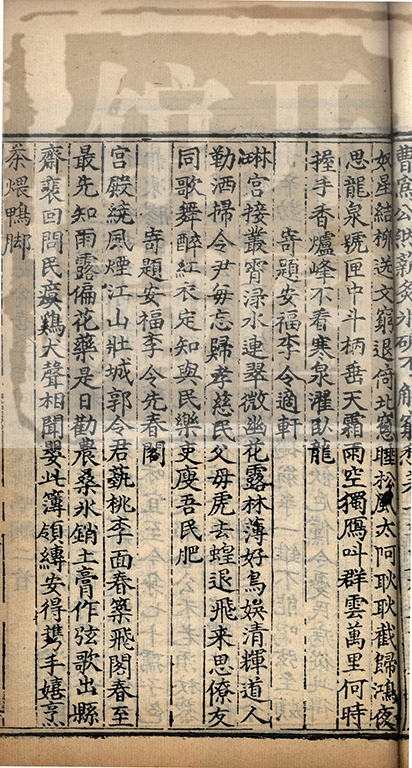 奴星結柳送文窮退倚北窻睡松風太阿耿耿截歸鴻夜
思龍泉號匣中斗柄垂天霜雨空獨鴈叫群雲萬里何時
握手香爐峰不看寒泉濯臥龍
寄題安福李令適軒
琳宮接叢霄淥水連翠微幽花露林薄好鳥娛清輝道人
勤洒掃令尹每忘歸孝慈民父母虎去蝗退飛来思僚友
同歌舞醉紅衣定知與民樂吏瘦吾民肥
寄題安福李令先春閣
宮殿繞風煙江山壯城郭令君蓺桃李面春築飛閣春至
最先知雨露偏花藥是日勸農桑氷銷土膏作弦歌出縣
齋裵回問民瘼鷄犬聲相聞嬰此簿領縛安得攜手嬉烹
茶煨鴨脚